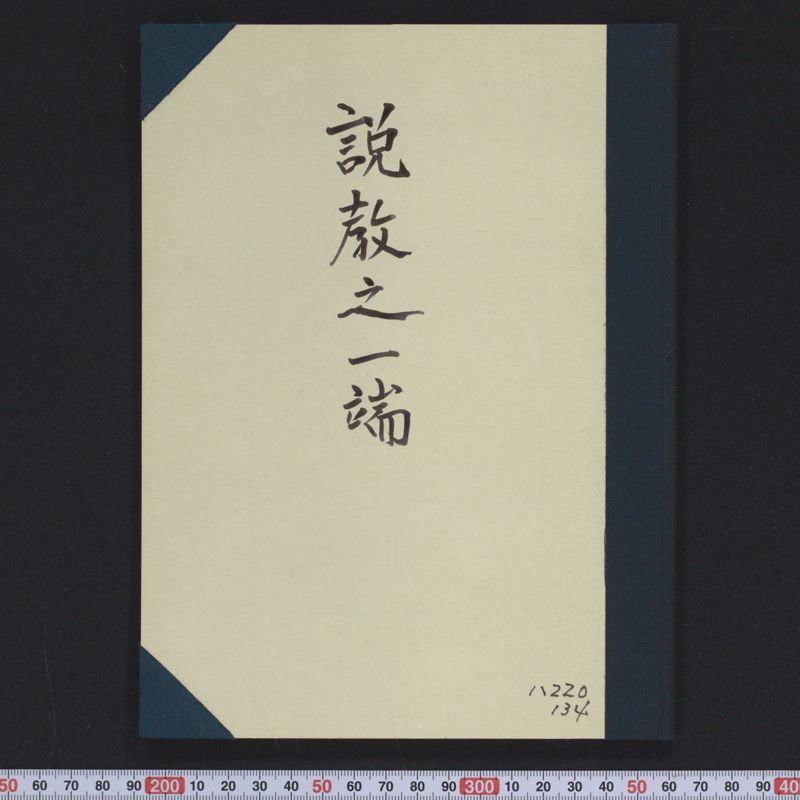 説教之一端
ハ220
134
50 60 70 80 90 200 10 20 30 40 50 60 70 80 90 300 10 20 30 40 50 60 70 80 90 40